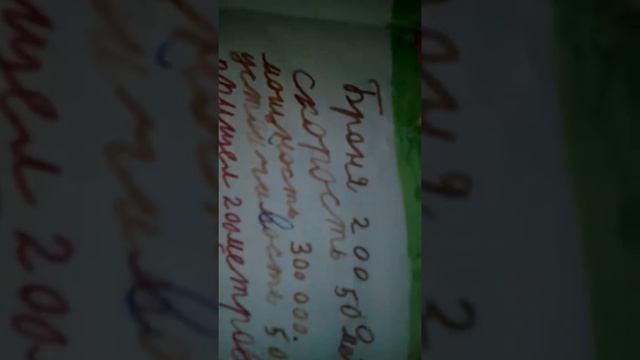 Броня 200
скорость 500
мощность 300 000.
устойчивость 50
прицел 200метров